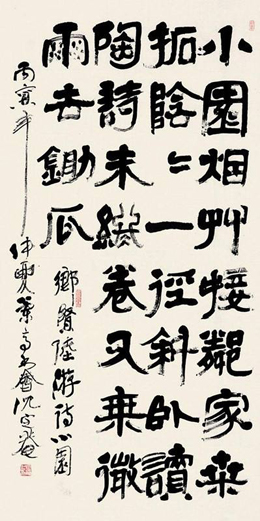 小園烟艸接鄰家桑
柘陰々一徑斜卧讀
陶詩未終卷又乘微
雨去鋤瓜
鄉賢陸游詩小園
丙寅年仲夏沈定庵